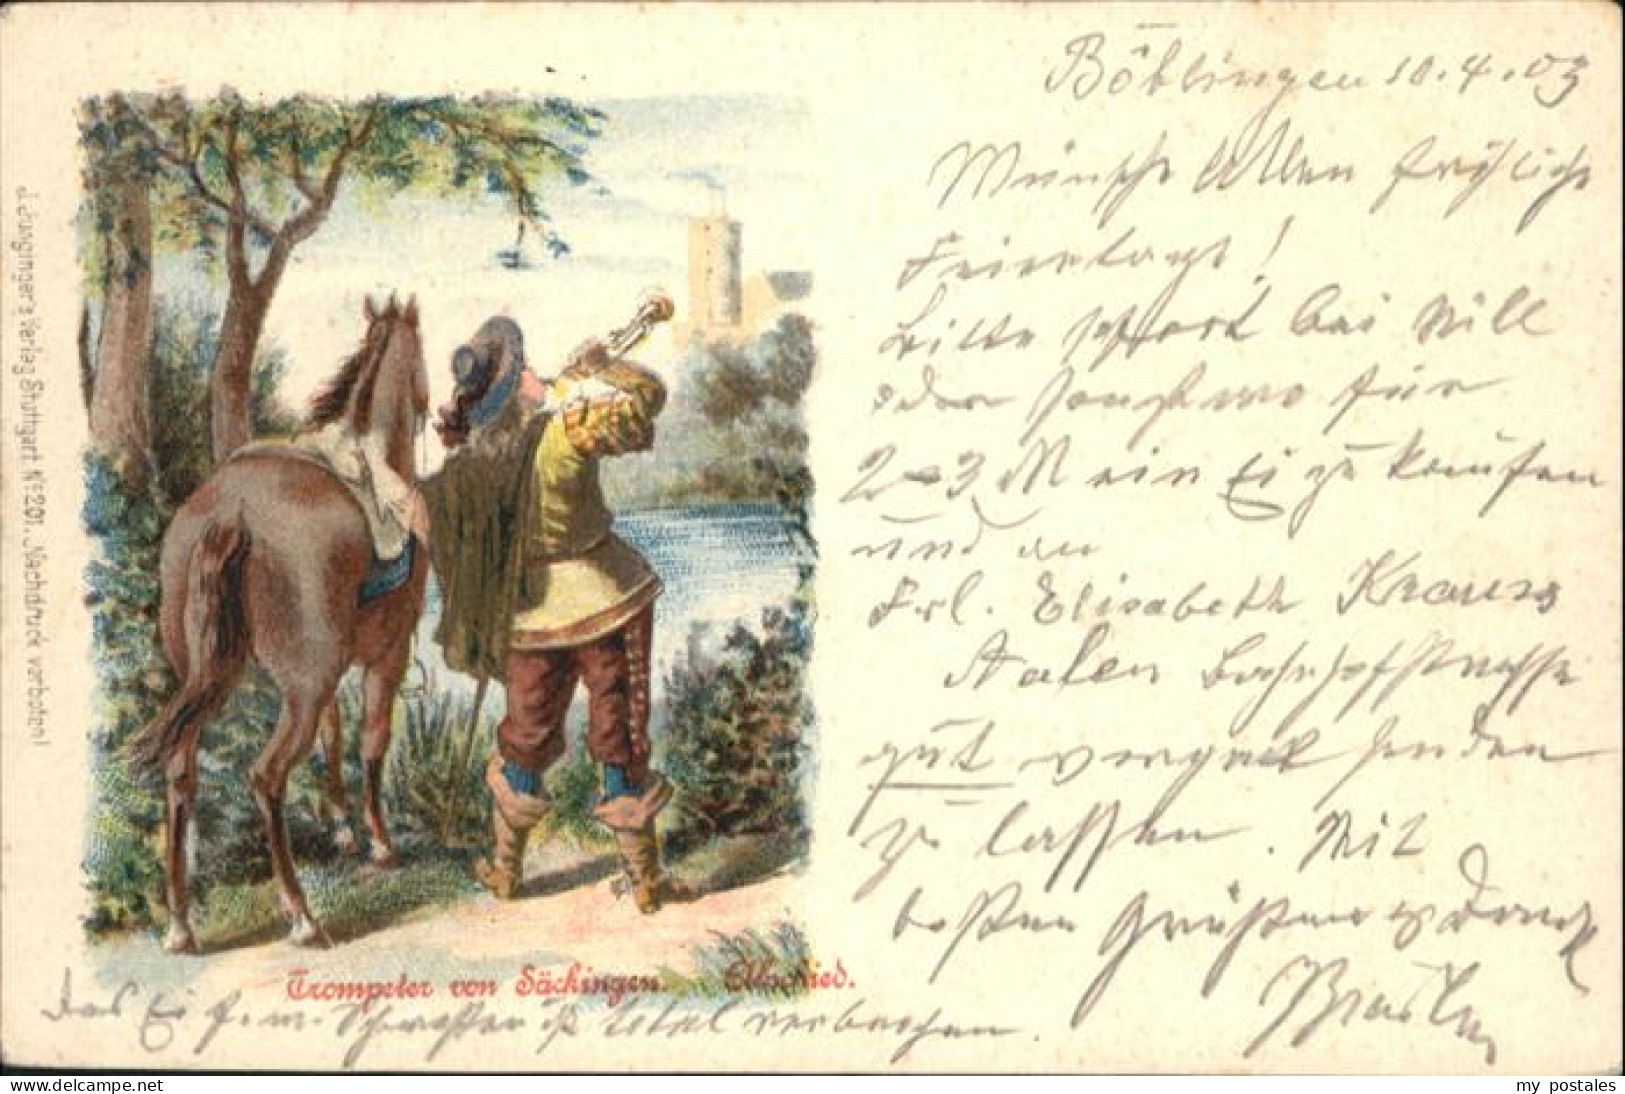 Böblingen 10.4.03
Wünsche Allen fröhliche
Feiertage!
Bitte sofort bei Will
oder sonstwo für
2-3 M ein Ei zu kaufen
und an
Frl. Elisabeth Krauss
Aalen Bahnhofstrasse
gut verpackt senden
zu lassen. Mit
besten Grüßen & Dank
Das Ei f. m. Schwester ist total verbrochen.
Trompeter von Säckingen. Abschied.
Junginger's Verlag Stuttgart. No 201. Nachdruck verboten!
my postales